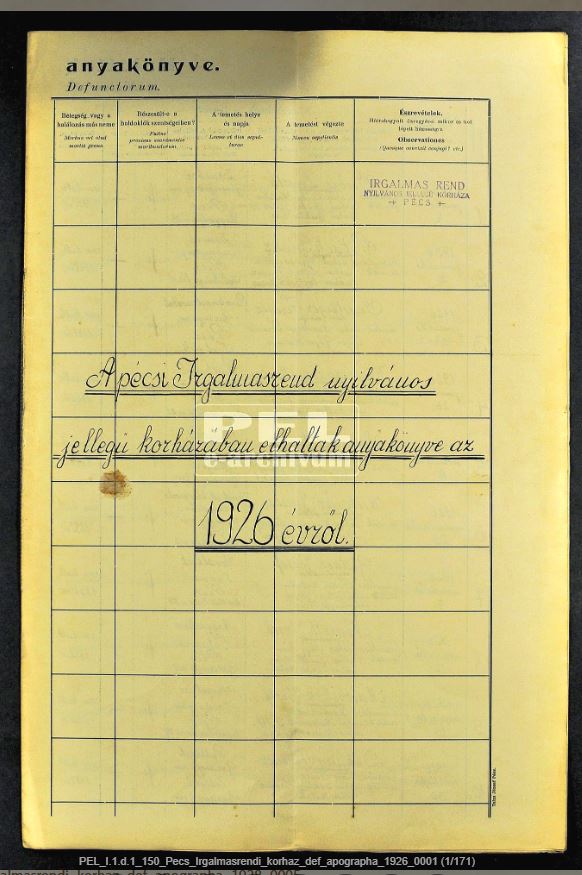 anyakönyve.
Defunctorum.
Betegség vagy a
halálozás más neme
Morbus vel aliud
mortis genus
Részesült-e a
haldoklók szentségeiben?
provisus sacramentis
moribundorum
A temetés helye
és napja
Locus et dies sepul-
turae
A temetést végezte
Nomen sepelientis
Észrevételek.
Observationes
IRGALMAS REND
NYILVÁNOS JELLEGŰ KÓRHÁZA
PÉCS
A pécsi Irgalmasrend nyilvános
jellegű korházában elhaltak anyakönyve az
1926 évről.
PEL
e-archivum
PEL_I.1.d.1_150_Pecs_Irgalmasrendi_korhaz_def_apographa_1926_0001 (1/171)